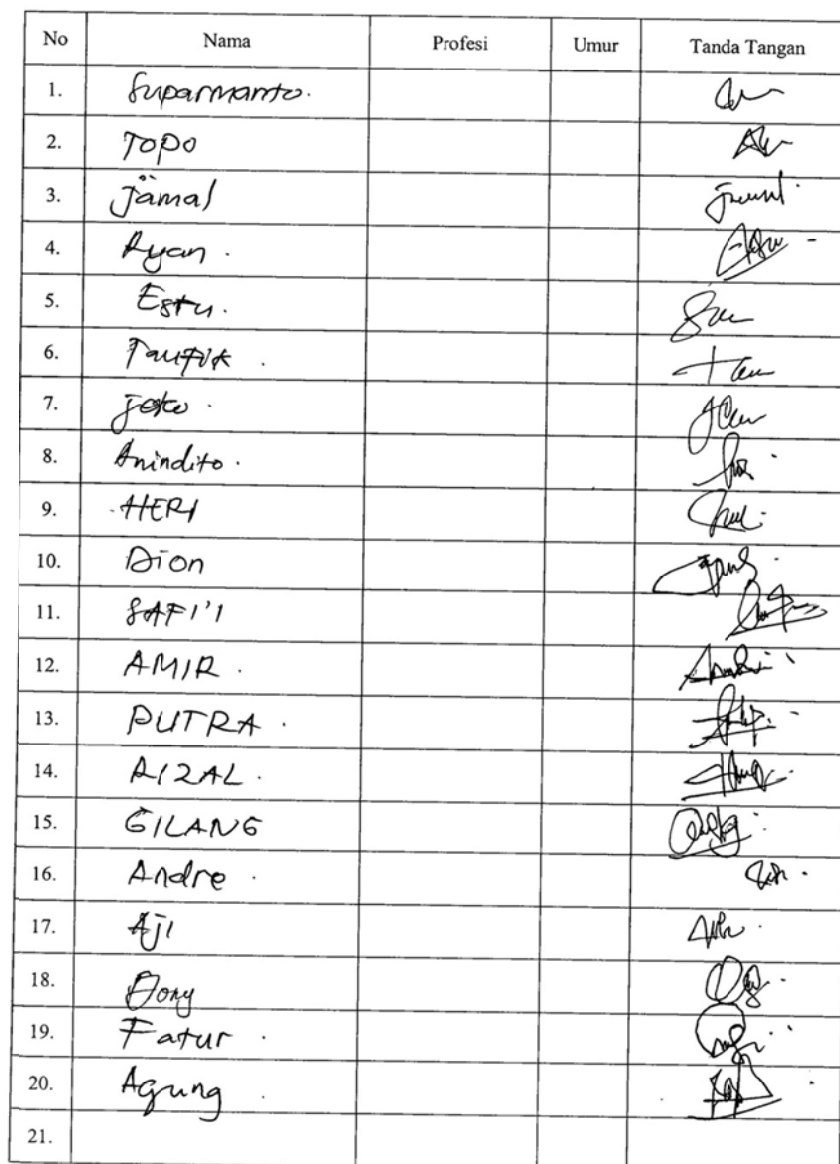 No Nama Profesi Umur Tanda Tangan
1. Suparmanto.
2. TOPO
3. Jamal
4. Ryan.
5. Estu.
6. Taufik.
7. Joko.
8. Anindito.
9. HERI
10. Dion
11. SAFI'I
12. AMIR.
13. PUTRA.
14. RIZAL.
15. GILANG
16. Andre.
17. Aji
18. Dony
19. Fatur.
20. Agung
21.